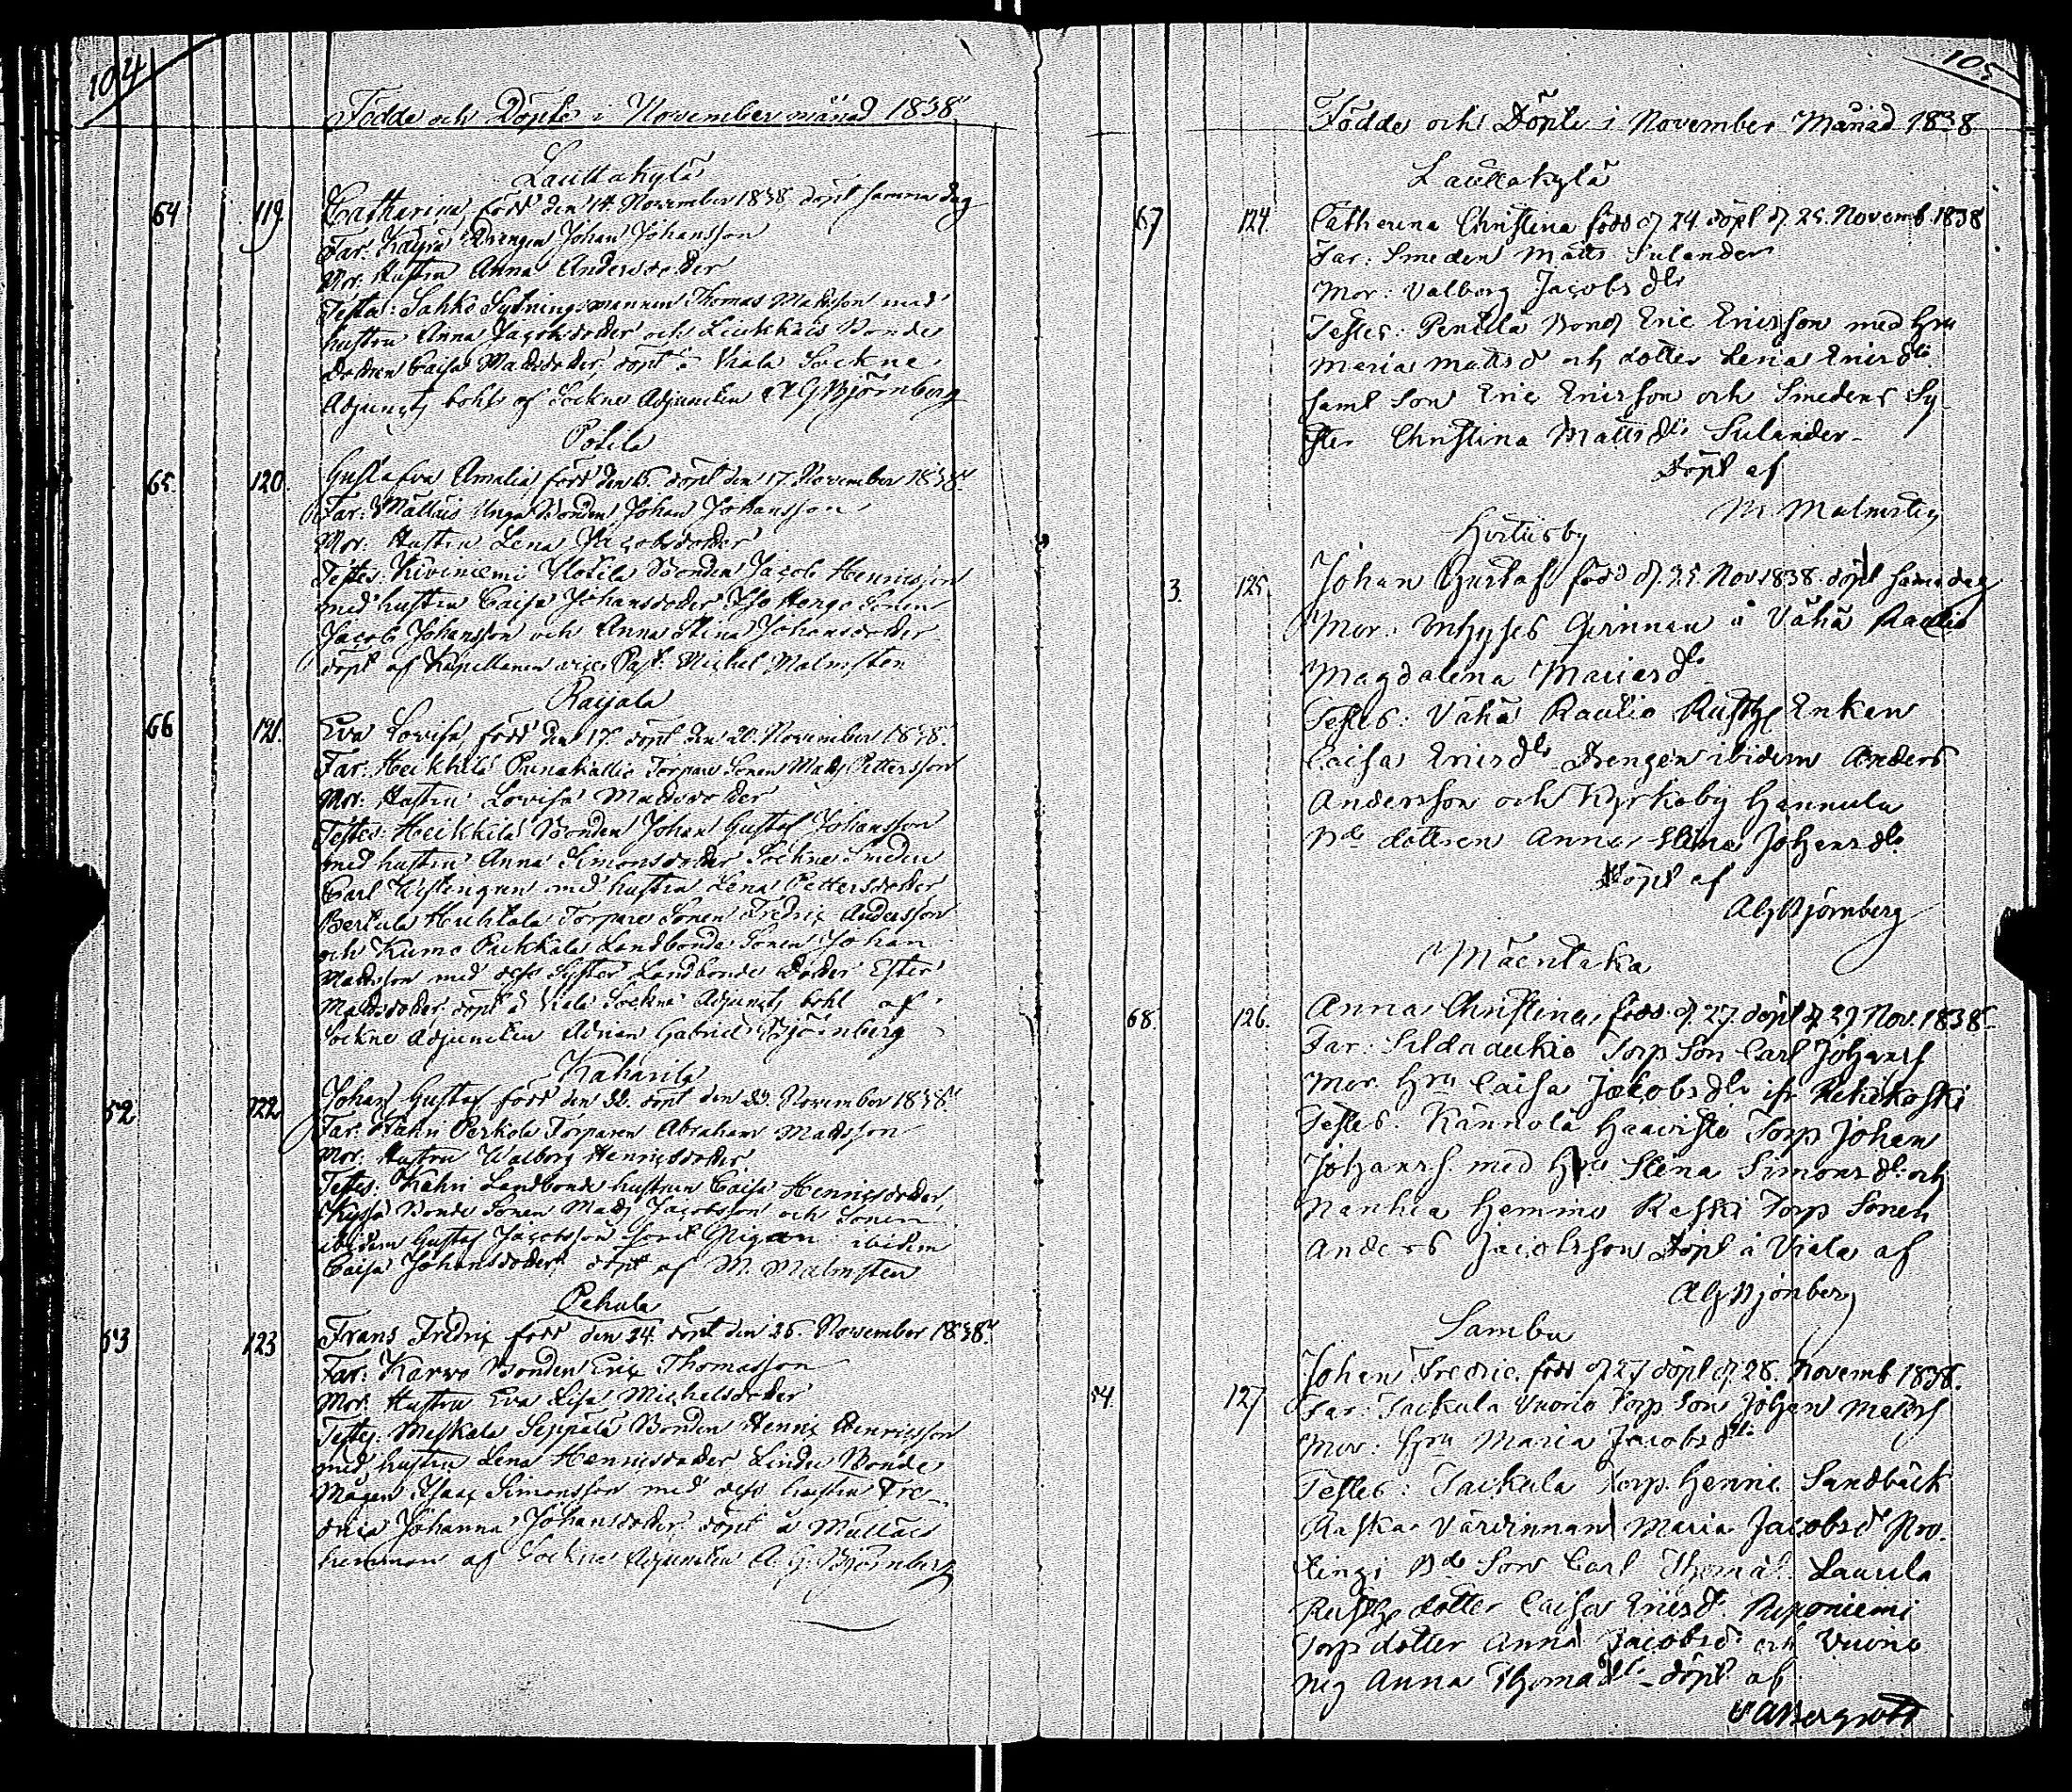 104
Födde och Döpte i November månad 1838
Lauttakylä
64 119 Catharina född den 14. November 1838, döpt samma dag
Far: Drengen Johan Johansson
Mor: Hustru Anna Andersdotter
Testes: Sahko Sytningsmannen Thomas Mattsson med
hustru Anna Jacobsdotter och Bonde
dottren Caisa Mattsdotter, döpt å Viala Sockne
Adjuncts bohle af Sockne Adjuncten A G Björnberg
Potila
65. 120. Gusta Eva Amalia född den 15. döpt den 17. November 1838.
Far: Mattais Unga Bonden Johan Johansson
Mor: Hustru Lena Jacobsdotter
Testes: Kiviniemi Bonden Jacob Henricsson
med hustru Caisa Johansdotter Sonen
Jacob Johansson och Anna Stina Johansdotter
döpt af Kapellanen vice Past: Michel Malmsten
Raijala
66 121. Eva Lovisa, född den 17. döpt den 20. November 1838.
Far: Heikkilä Punakallio Torpare Sonen Matts Pettersson
Mor: Hustru Lovisa Mattsdotter
Testes: Heikkilä Bonden Johan Gustaf Johansson
med hustru Anna Simonsdotter Sockne Smeden
Carl med hustru Lena Pettersdotter
Bertula Huhtala Torpare Sonen Fredric Andersson
och Kumo Landbonde Sonen Johan
Mattsson med dess Syster Landbonde Dotter Ester
Mattsdotter döpt å Viala Sockne Adjuncts bohl af
Sockne Adjuncten Adrian Gabriel Björnberg
Kaharila
52 122 Johan Gustaf född den 22. döpt den 23. November 1838.
Far: Torparen Abraham Mattsson
Mor: Hustru Walborg Henricsdotter
Testes: Kahri Landbonde hustrun Caisa Henricsdotter
Bonde Sonen Matts Jacobsson och Sonen
ibidem Gustaf Jacobsson samt Pigan ibidem
Caisa Johansdotter döpt af M. Malmsten
Pehula
53 123 Frans Fredric född den 24. döpt den 25. November 1838.
Far: Karvo Bonden Eric Thomasson
Mor: Hustru Eva Lisa Michelsdotter
Testes: Meskala Seppälä Bonden Henric Henricsson
med hustru Lena Henricsdotter Lindu Bonde
Mågen Isaac Simonsson med dess hustru Fre-
drica Johanna Johansdotter döpt å Mattais
hemman af Sockne Adjuncten A. G. Björnberg
105
Födde och Döpte i November Månad 1838
Lauttakylä
67 124. Catherina Christina född d. 24. döpt d. 25. Novemb. 1838
Far: Smeden Matts Sulander
Mor: Valborg Jacobs dtr
Testes: Penttilä Bond Eric Ericsson med hru
Maria Mattsd och dotter Lena Ericsdtr
samt Son Eric Ericsson och Smedens Sy-
ster Christina Mattsdtr Sulander-
Döpt af
M Malmsten
Hurtusby
3. 125. Johan Gustaf född d. 25. Nov 1838. döpt sama dag
Mor: Inhyses Qvinnan å Vähä Raulio
Magdalena Mariasdr
Testes: Vähä Raulio Rusth Enkan
Caisa Ericsdtr Drengen ibidem Anders
Andersson och Kyrkoby Hannula
Bde dottren Anna Stina Johansdtr
Döpt af
A G Björnberg
Mäentaka
68. 126. Anna Christina, född d. 27. döpt d 29 Nov. 1838
Far: Torp Son Carl Johanss
Mor Hru Caisa Jacobsdtr Kehikoski
Testes: Kännölä Haavisto Torp Johan
Johanss. med Hru Stina Simonsdtr och
Nanhia Hemmo Raski Torp Sonen
Anders Jacobsson Döpt å Viala af
A G Björnberg
Sambu
54. 127 Johan Fredric född d. 27 döpt d. 28. Novemb 1838.
Far: Vuorio Torp Son Johan Mattss
Mor: Hru Maria Jacobsdtr
Testes: Torp. Henric Sandbäck
Raska Värdinnan Maria Jacobsd
Bde Son Carl Thomas. Laurila
Rusth dotter Caisa Ericsd. Reponiemi
Torp dotter Anna Jacobsd och Vuorio
Anna Thomasdtr - döpt af